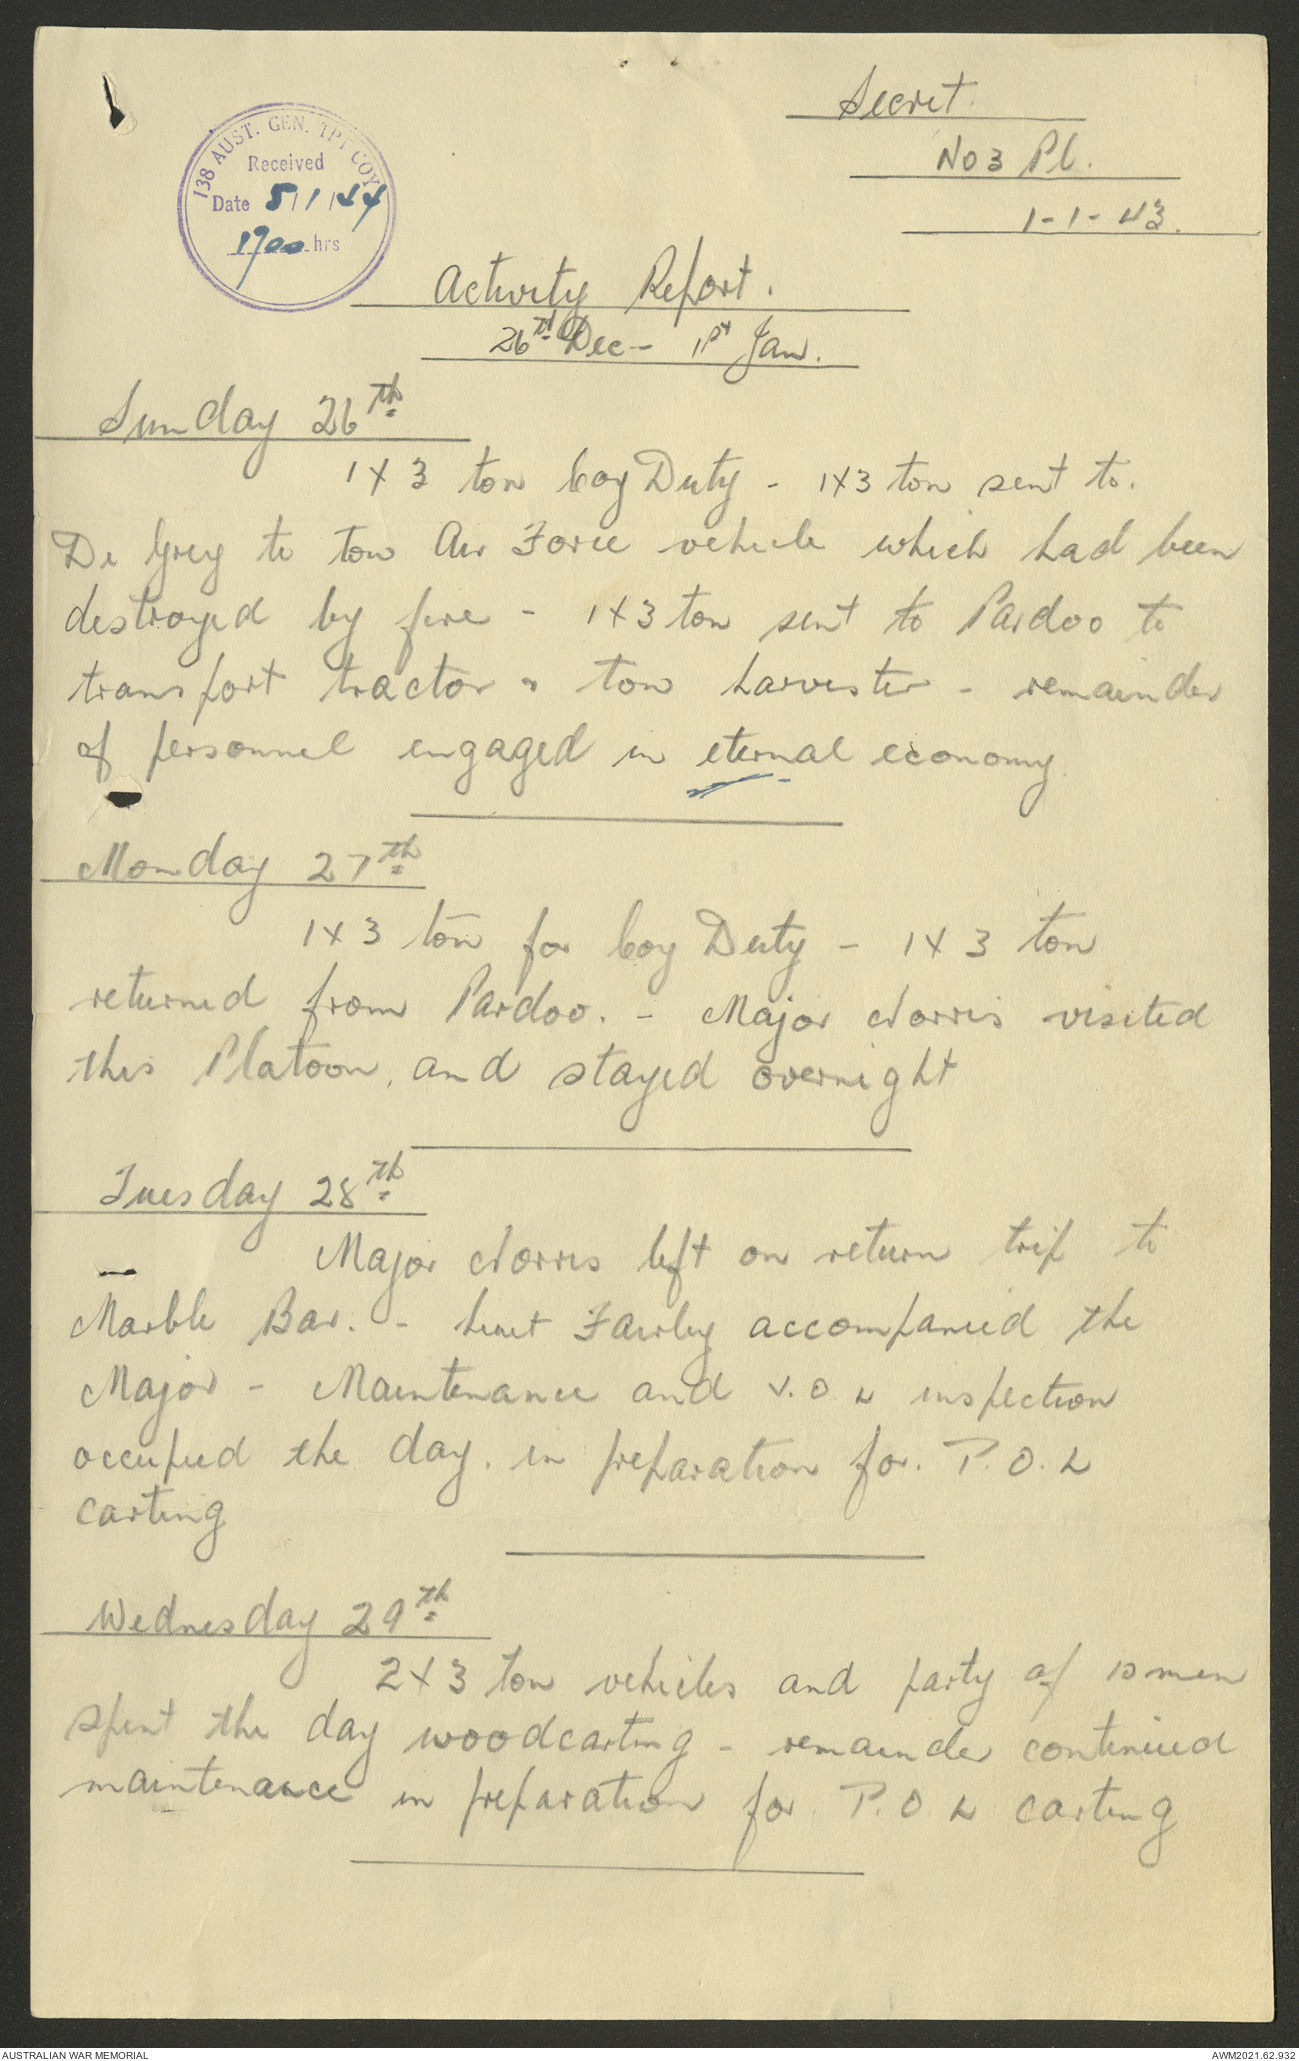 Secret.
No 3 Pl.
1-1-43.
138 AUST. GEN. TPT COY
Received
Date 5/1/44
1900 hrs
Activity Report.
26th Dec - 1st Jan.
Sunday 26th
1 x 3 ton Coy Duty - 1x3 ton sent to.
De Grey to tow Air Force vehicle which had been
destroyed by fire - 1x3 ton sent to Pardoo to
transport tractor & tow harvester - remainder
of personnel engaged in eternal economy
Monday 27th
1 x 3 ton for Coy Duty - 1 x 3 ton
returned from Pardoo. - Major Norris visited
this Platoon, and stayed overnight
Tuesday 28th
Major Norris left on return trip to
Marble Bar. - Lieut Fairley accompanied the
Major - Maintenance and V.O.L inspection
occupied the day. in preparation for. P.O.L
carting
Wednesday 29th
2 x 3 ton vehicles and party of 10 men
spent the day woodcarting - remainder continued
maintenance in preparation for P.O.L carting
AUSTRALIAN WAR MEMORIAL
AWM2021.62.932